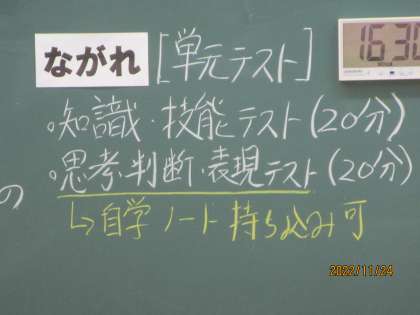 ながれ [単元テスト]
16:30
・知識・技能テスト(20分)
・思考・判断・表現テスト(20分)
の
↳自学ノート持ち込み可
2022/11/24